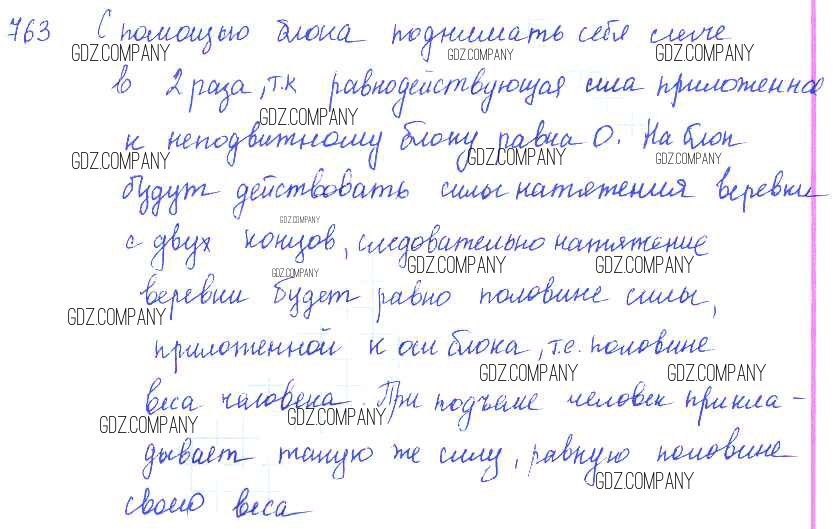 763 С помощью блока поднимать себя легче
GDZ.COMPANY GDZ.COMPANY GDZ.COMPANY
в 2 раза, т.к равнодействующая сила приложенная
GDZ.COMPANY
к неподвижному блоку равна 0. На блок
GDZ.COMPANY GDZ.COMPANY GDZ.COMPANY
будут действовать силы натяжения веревки
GDZ.COMPANY
с двух концов, следовательно натяжение
GDZ.COMPANY GDZ.COMPANY GDZ.COMPANY
веревки будет равно половине силы,
GDZ.COMPANY
приложенной к оси блока, т.е. половине
GDZ.COMPANY GDZ.COMPANY
веса человека. При подъеме человек прикла-
GDZ.COMPANY GDZ.COMPANY
дывает такую же силу, равную половине
GDZ.COMPANY
своего веса